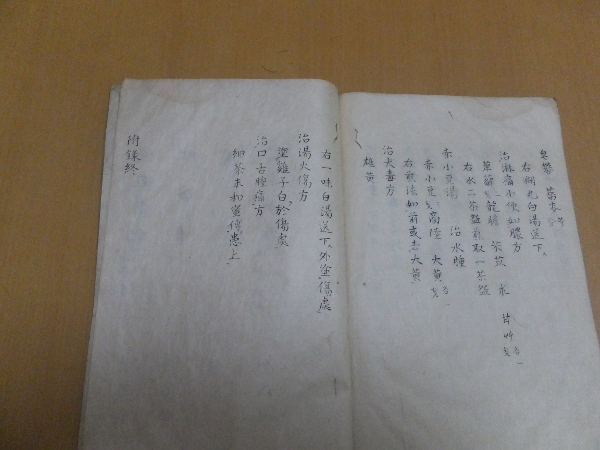 右糊丸白湯送下
治淋痛小便如膿方
右水二茶盞煎取一茶盞
赤小豆湯 治水腫
赤小豆 商陸 大黄
右煎法如前或去大黄
治犬毒方
雄黄
右一味白湯送下外塗傷處
治湯火傷方
塗雞子白於傷處
治口舌腫痛方
細茶末和蜜傅患上
附録終